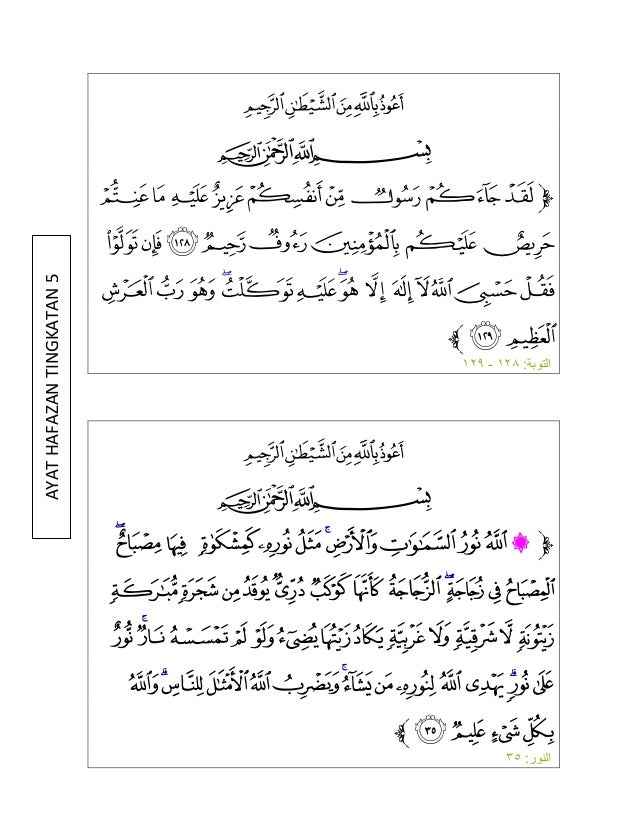 أَعُوذُ بِٱللَّهِ مِنَ ٱلشَّيْطَٰنِ ٱلرَّجِيمِ
بِسْمِ ٱللَّهِ ٱلرَّحْمَٰنِ ٱلرَّحِيمِ
﴿ لَقَدْ جَآءَكُمْ رَسُولٌ مِّنْ أَنفُسِكُمْ عَزِيزٌ عَلَيْهِ مَا عَنِتُّمْ
حَرِيصٌ عَلَيْكُم بِٱلْمُؤْمِنِينَ رَءُوفٌ رَّحِيمٌ ١٢٨ فَإِن تَوَلَّوْا۟
فَقُلْ حَسْبِىَ ٱللَّهُ لَآ إِلَٰهَ إِلَّا هُوَ ۖ عَلَيْهِ تَوَكَّلْتُ ۖ وَهُوَ رَبُّ ٱلْعَرْشِ
ٱلْعَظِيمِ ١٢٩ ﴾
التوبة: ١٢٨ - ١٢٩
AYAT HAFAZAN TINGKATAN 5
أَعُوذُ بِٱللَّهِ مِنَ ٱلشَّيْطَٰنِ ٱلرَّجِيمِ
بِسْمِ ٱللَّهِ ٱلرَّحْمَٰنِ ٱلرَّحِيمِ
﴿ ۞ ٱللَّهُ نُورُ ٱلسَّمَٰوَٰتِ وَٱلْأَرْضِ ۚ مَثَلُ نُورِهِۦ كَمِشْكَوٰةٍ فِيهَا مِصْبَاحٌ ۖ
ٱلْمِصْبَاحُ فِى زُجَاجَةٍ ۖ ٱلزُّجَاجَةُ كَأَنَّهَا كَوْكَبٌ دُرِّىٌّ يُوقَدُ مِن شَجَرَةٍ مُّبَٰرَكَةٍ
زَيْتُونَةٍ لَّا شَرْقِيَّةٍ وَلَا غَرْبِيَّةٍ يَكَادُ زَيْتُهَا يُضِىٓءُ وَلَوْ لَمْ تَمْسَسْهُ نَارٌ ۚ نُّورٌ
عَلَىٰ نُورٍ ۗ يَهْدِى ٱللَّهُ لِنُورِهِۦ مَن يَشَآءُ ۚ وَيَضْرِبُ ٱللَّهُ ٱلْأَمْثَٰلَ لِلنَّاسِ ۗ وَٱللَّهُ
بِكُلِّ شَىْءٍ عَلِيمٌ ٣٥ ﴾
النور: ٣٥